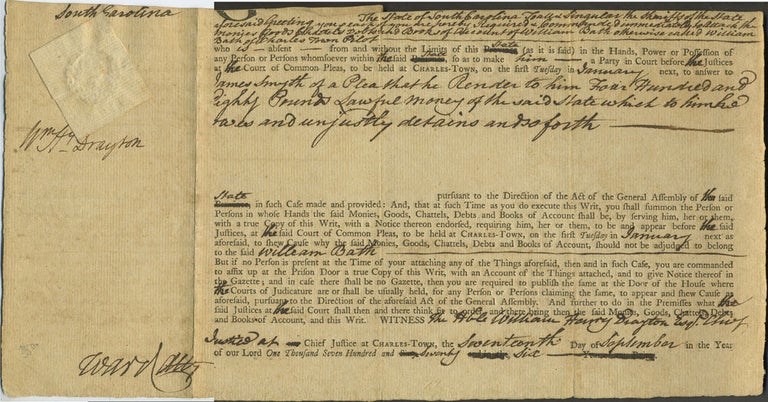 South Carolina
The State of South Carolina To all & Singular the Sheriffs of the State
aforesaid Greeting you & each of you are hereby Required & Commanded immediately to attach the
Monies Goods Chattels Debts and Books of Account of William Bath otherwise called William
Bath of Charles Town Pilot
who is — absent — from and without the Limits of this State (as it is said) in the Hands, Power or Possession of
any Person or Persons whomsoever within the said State, so as to make him — a Party in Court before the Justices
at the Court of Common Pleas, to be held at CHARLES-TOWN, on the first Tuesday in January next, to answer to
James Smyth of a Plea that he Render to him Four Hundred and
Eighty Pounds Lawful money of the said State which to him he
owes and unjustly detains and so forth
Wm. Hy. Drayton
State pursuant to the Direction of the Act of the General Assembly of the said
in such Case made and provided: And, that at such Time as you do execute this Writ, you shall summon the Person or
Persons in whose Hands the said Monies, Goods, Chattels, Debts and Books of Account shall be, by serving him, her or them,
with a true Copy of this Writ, with a Notice thereon endorsed, requiring him, her or them, to be and appear before the said
Justices, at the said Court of Common Pleas, to be held at CHARLES-TOWN, on the first Tuesday in January next as
aforesaid, to shew Cause why the said Monies, Goods, Chattels, Debts and Books of Account, should not be adjudged to belong
to the said William Bath
But if no Person is present at the Time of your attaching any of the Things aforesaid, then and in such Case, you are commanded
to affix up at the Prison Door a true Copy of this Writ, with an Account of the Things attached, and to give Notice thereof in
the Gazette; and in case there shall be no Gazette, then you are required to publish the same at the Door of the House where
the Courts of Judicature are or shall be usually held, for any Person or Persons claiming the same, to appear and shew Cause as
aforesaid, pursuant to the Direction of the aforesaid Act of the General Assembly. And further to do in the Premises what the
said Justices at the said Court shall then and there think fit to order, and there being then the said Monies, Goods, Chattels, Debts
and Books of Account, and this Writ. WITNESS the Hble William Henry Drayton Esqr. Chief
Justice at Chief Justice at CHARLES-TOWN, the Seventeenth Day of September in the Year
of our Lord One Thousand Seven Hundred and Seventy Six
Ward Atty